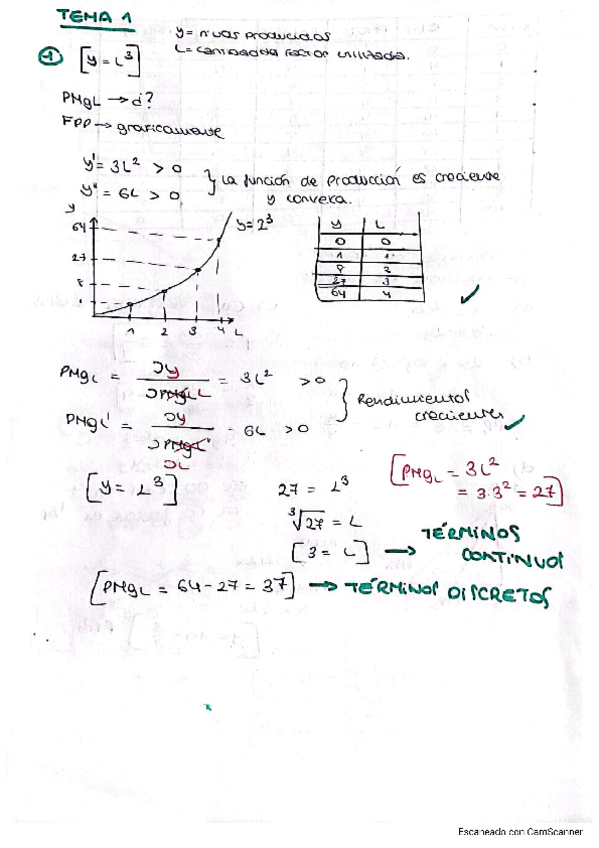 TEMA 1
y = nuos producidos
L = cantidad de factor utilizada.
-1 [y = L³]
PMgL → d?
FPP → graficamente
y' = 3L² > 0
y'' = 6L > 0
La función de producción es creciente
y convexa.
y
64
27
8
1
1 2 3 4 L
y = 2³
y L
0 0
1 1
8 2
27 3
64 4
PMgL = ∂y / ∂PMgL L = 3L² > 0
PMgL' = ∂y / ∂PMgL' ∂L - 6L > 0
Rendimientos
crecientes
[y = L³]
27 = L³
∛27 = L
[3 = L] → TÉRMINOS
CONTINUOS
[PMgL = 3L²
= 3·3² = 27]
[PMgL = 64 - 27 = 37] → TÉRMINOS DISCRETOS
Escaneado con CamScanner